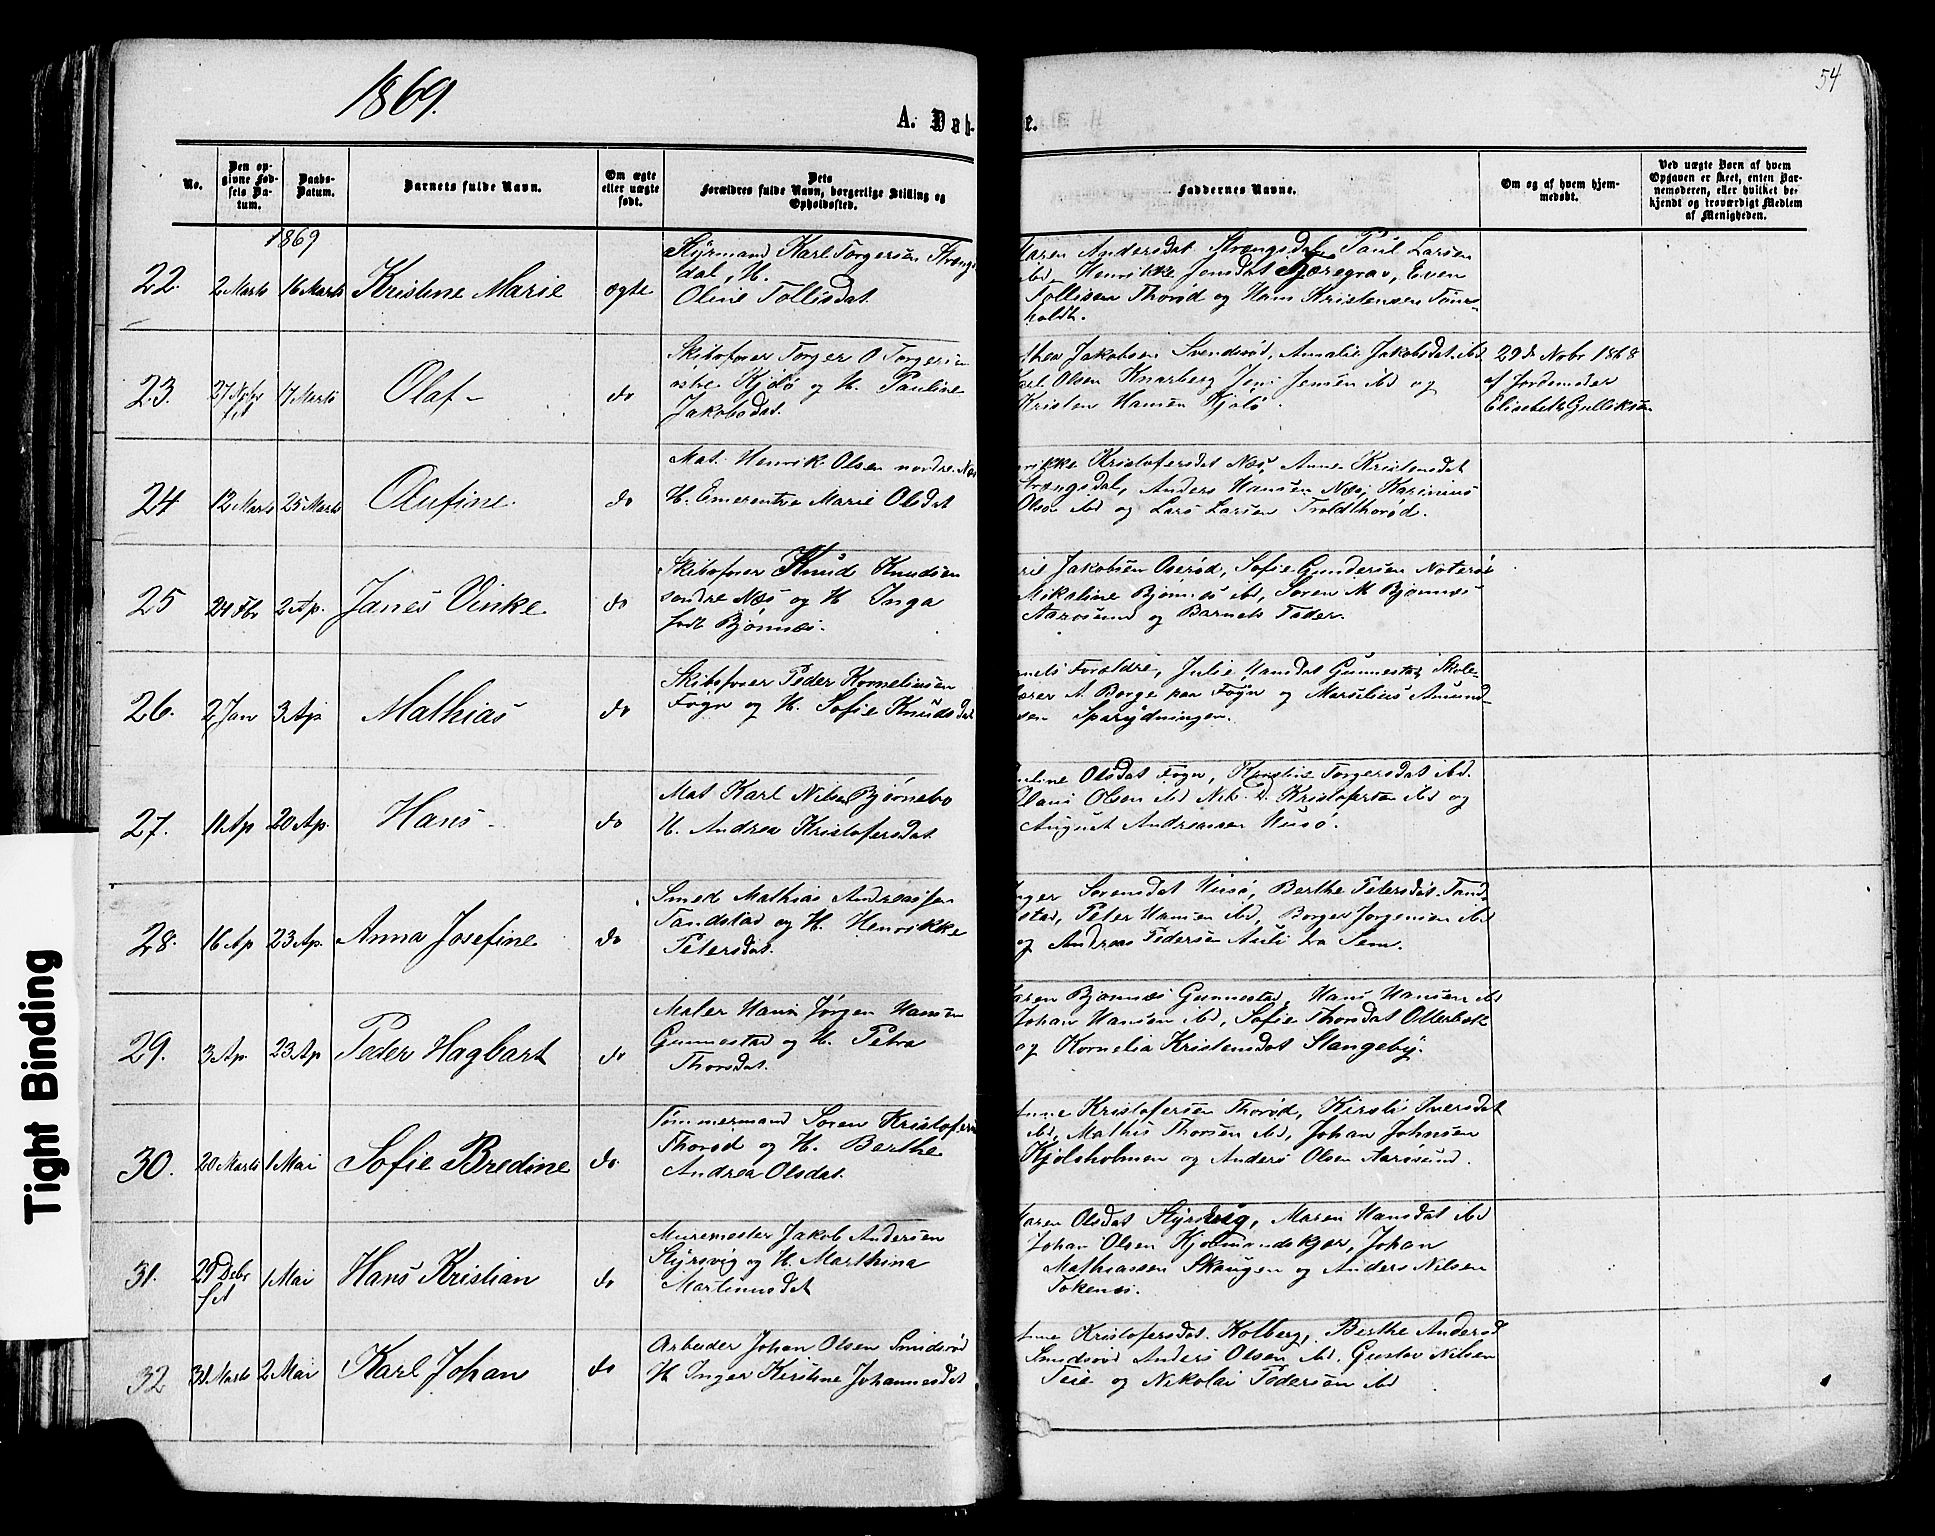 54
1869.
A. Dåb-
e.
No.
Den op-
givne Fød-
sels Da-
tum.
Daabs-
Datum.
Barnets fulde Navn.
Om ægte
eller uægte
født.
Dets
Forældres fulde Navn, borgerlige Stilling og
Opholdssted.
Faddernes Navne.
Om og af hvem hjem-
medøbt.
Ved uægte Børn af hvem
Opgaven er skeet, enten Bar-
nemoderen, eller hvilket be-
kjendt og troværdigt Medlem
af Menigheden.
1869
22. 2 Marts 16 Marts Kristine Marie ægte
Styrmand Karl Torgersen Strengs
dal, H.
Oline Tollisdat.
Maren Andersdat Strengsdal, Paul Larsen
ibd, Henrikke Jensdat Sjøregrav, Even
Tollisen Thorød og Hans Kristensen
holdt.
23. 27 Nobr 17 Marts Olaf - do
Skibsfører Torger O Torgersen
østre Kjøló og H. Pauline
Jakobsdat.
Jakobsen Svendsrød, Amalie Jakobsdat ibd
Karl Olsen Knarberg Jens Jensen ibd og
Kristen Hansen Kjølø.
29de Nobr 1868
af Jordemoder
Elisabeth Gulliksen
24 12 Marts 25 Marts Olufine do
Mat. Henrik Olsen nordre Næs
H. Emerentse Marie Olsdat
Kristofersdat Næs, Anne Kristensdat
Strengsdal, Anders Hansen Næs, Karinius
Olsen ibd og Lars Larsen Troldthorød.
25 24 Fbr 2 Ap. Janes Vinke do
Skibsfører Knud Knudsen
søndre Næs og H Inga
født Bjønnes.
Jakobsen Oserød, Sofie Gundersen Nøterø
Nikoline Bjønnes ibd, Søren M Bjønnes
Aarøsund og Barnets Fader.
26. 2 Jan 3 Ap Mathias do
Skibsfører Peder Korneliusen
Føyn og H. Sofie Knudsdat
Forældre, Julie Hansdat Gunnestad, Skole-
lærer A. Borge paa Føyn og Marselius Amund-
sen Sparydningen.
27. 11 Ap 20 Ap. Hans - do
Mat Karl Nilsen Bjørnebo
H. Andrea Kristofersdat
Olsdat Føyn, Torgersdat ibd.
Hans Olsen ibd Nik. A. Kristofersen ibd og
August Andreassen Husø.
28. 16 Ap 23 Ap. Anna Josefine do
Smed Mathias Andreassen
Tandstad og H. Henrikke
Petersdat.
Inger Sørensdat Husø, Berthe Petersdat Tand
stad, Peter Hansen ibd, Borger Jørgensen ibd
og Andreas Pedersen Auli fra Sem.
29. 3 Ap. 23 Ap Peder Hagbart do
Maler Hans Jørgen Hansen
Gunnestad og H. Petra
Thorsdat.
Karen Bjønnes Gunnestad, Hans Hansen ibd
Johan Hansen ibd, Sofie Thorsdat Otterbek
og Kornelia Kristensdat Slangeby.
30. 20 Marts 1 Mai Sofie Bredine do.
Tømmermand Søren Kristofersen
Thorød og H. Berthe
Andrea Olsdat.
Anne Kristofersen Thorød, Kirsti Iversdat
ibd, Mathis Thorsen ibd, Johan Johnsen
Kjølsholmen og Anders Olsen Aarøsund.
31. 29 Debr 1 Mai Hans Kristian do
Muremester Jakob Andersen
Styrsvig og H. Marthina
Martinusdat
Maren Olsdat Styrsvig, Maren Hansdat ibd
Johan Olsen Kjølmandskjær, Johan
Mathiassen Skaugen og Anders Nilsen
Tokenæs.
32 31 Marts 2 Mai Karl Johan do
Arbeider Johan Olsen Smidsrød
H Inger Kirstine Johannesdat
Anne Kristofersdat Kolberg, Berthe Andersd
Smidsrød Anders Olsen ibd. Gustav Nilsen
Teie og Nikolai Pedersen ibd
Tight Binding